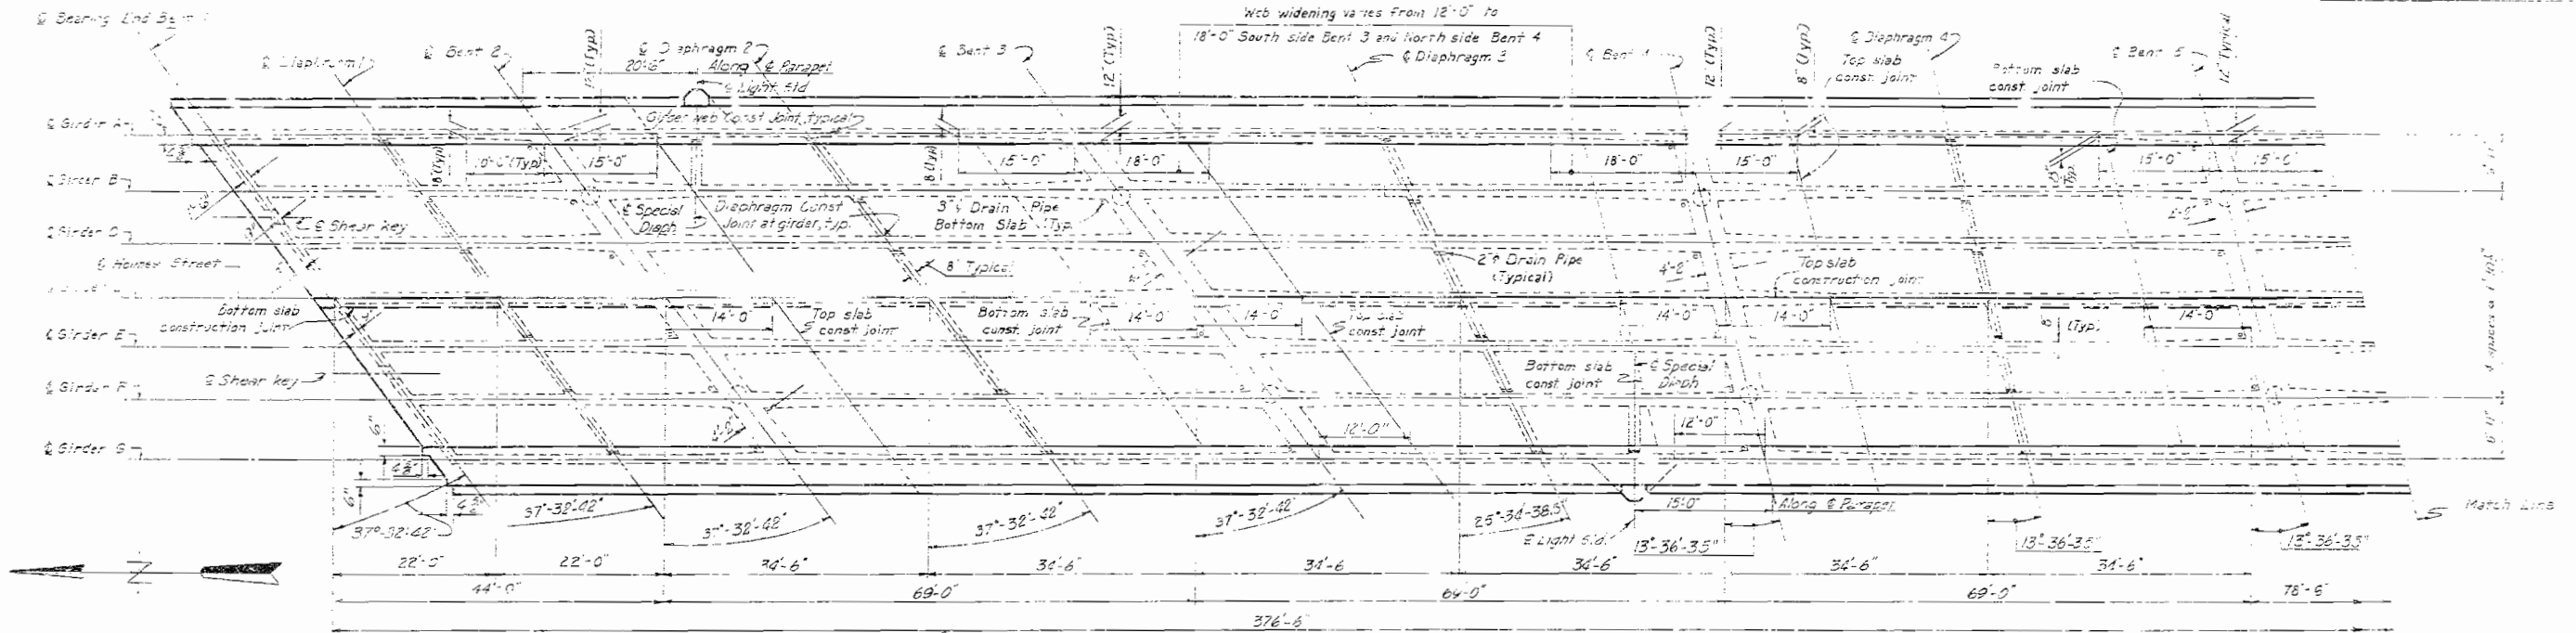 ℄ Bearing End Bent 1
℄ Diaphragm 1
℄ Bent 2
20'-6"
Along ℄ Parapet
℄ Diaphragm 2
℄ Light Std
℄ Bent 3
12" (Typ)
Web widening varies from 12'-0" to
18'-0" South side Bent 3 and North side Bent 4
℄ Diaphragm 3
℄ Bent 4
12" (Typ)
8" (Typ)
℄ Diaphragm 4
Top slab
const. joint
Bottom slab
const. joint
℄ Bent 5
12" Typical
℄ Girder A
Girder web Const Joint, typical
8" (Typ)
15'-0"
8" (Typ)
15'-0"
18'-0"
18'-0"
15'-0"
15'-0"
15'-0"
℄ Girder B
℄ Shear key
℄ Special
Diaph
Diaphragm Const
Joint at girder, typ.
3" ϕ Drain Pipe
Bottom Slab (Typ.
℄ Holmes Street
8" Typical
2" ϕ Drain Pipe
(Typical)
4'-8"
Top slab
construction joint
Bottom slab
construction joint
14'-0"
Top slab
const. joint
Bottom slab
const. joint
14'-0"
14'-0"
Top slab
const. joint
14'-0"
14'-0"
8"
(Typ)
14'-0"
℄ Girder E
℄ Shear key
℄ Girder F
Bottom slab
const joint
℄ Special
Diaph
12'-0"
12'-0"
℄ Girder G
6"
6"
37°-32'-42"
37°-32'-42"
37°-32'-42"
37°-32'-42"
37°-32'-42"
25°-34'-38.5"
15'-0"
Along ℄ Parapet
℄ Light Std.
13°-36'-35"
13°-36'-35"
13°-36'-35"
Match Line
N
22'-0"
22'-0"
34'-6"
34'-6"
34'-6"
34'-6"
34'-6"
34'-6"
44'-0"
69'-0"
69'-0"
69'-0"
78'-6"
376'-6"